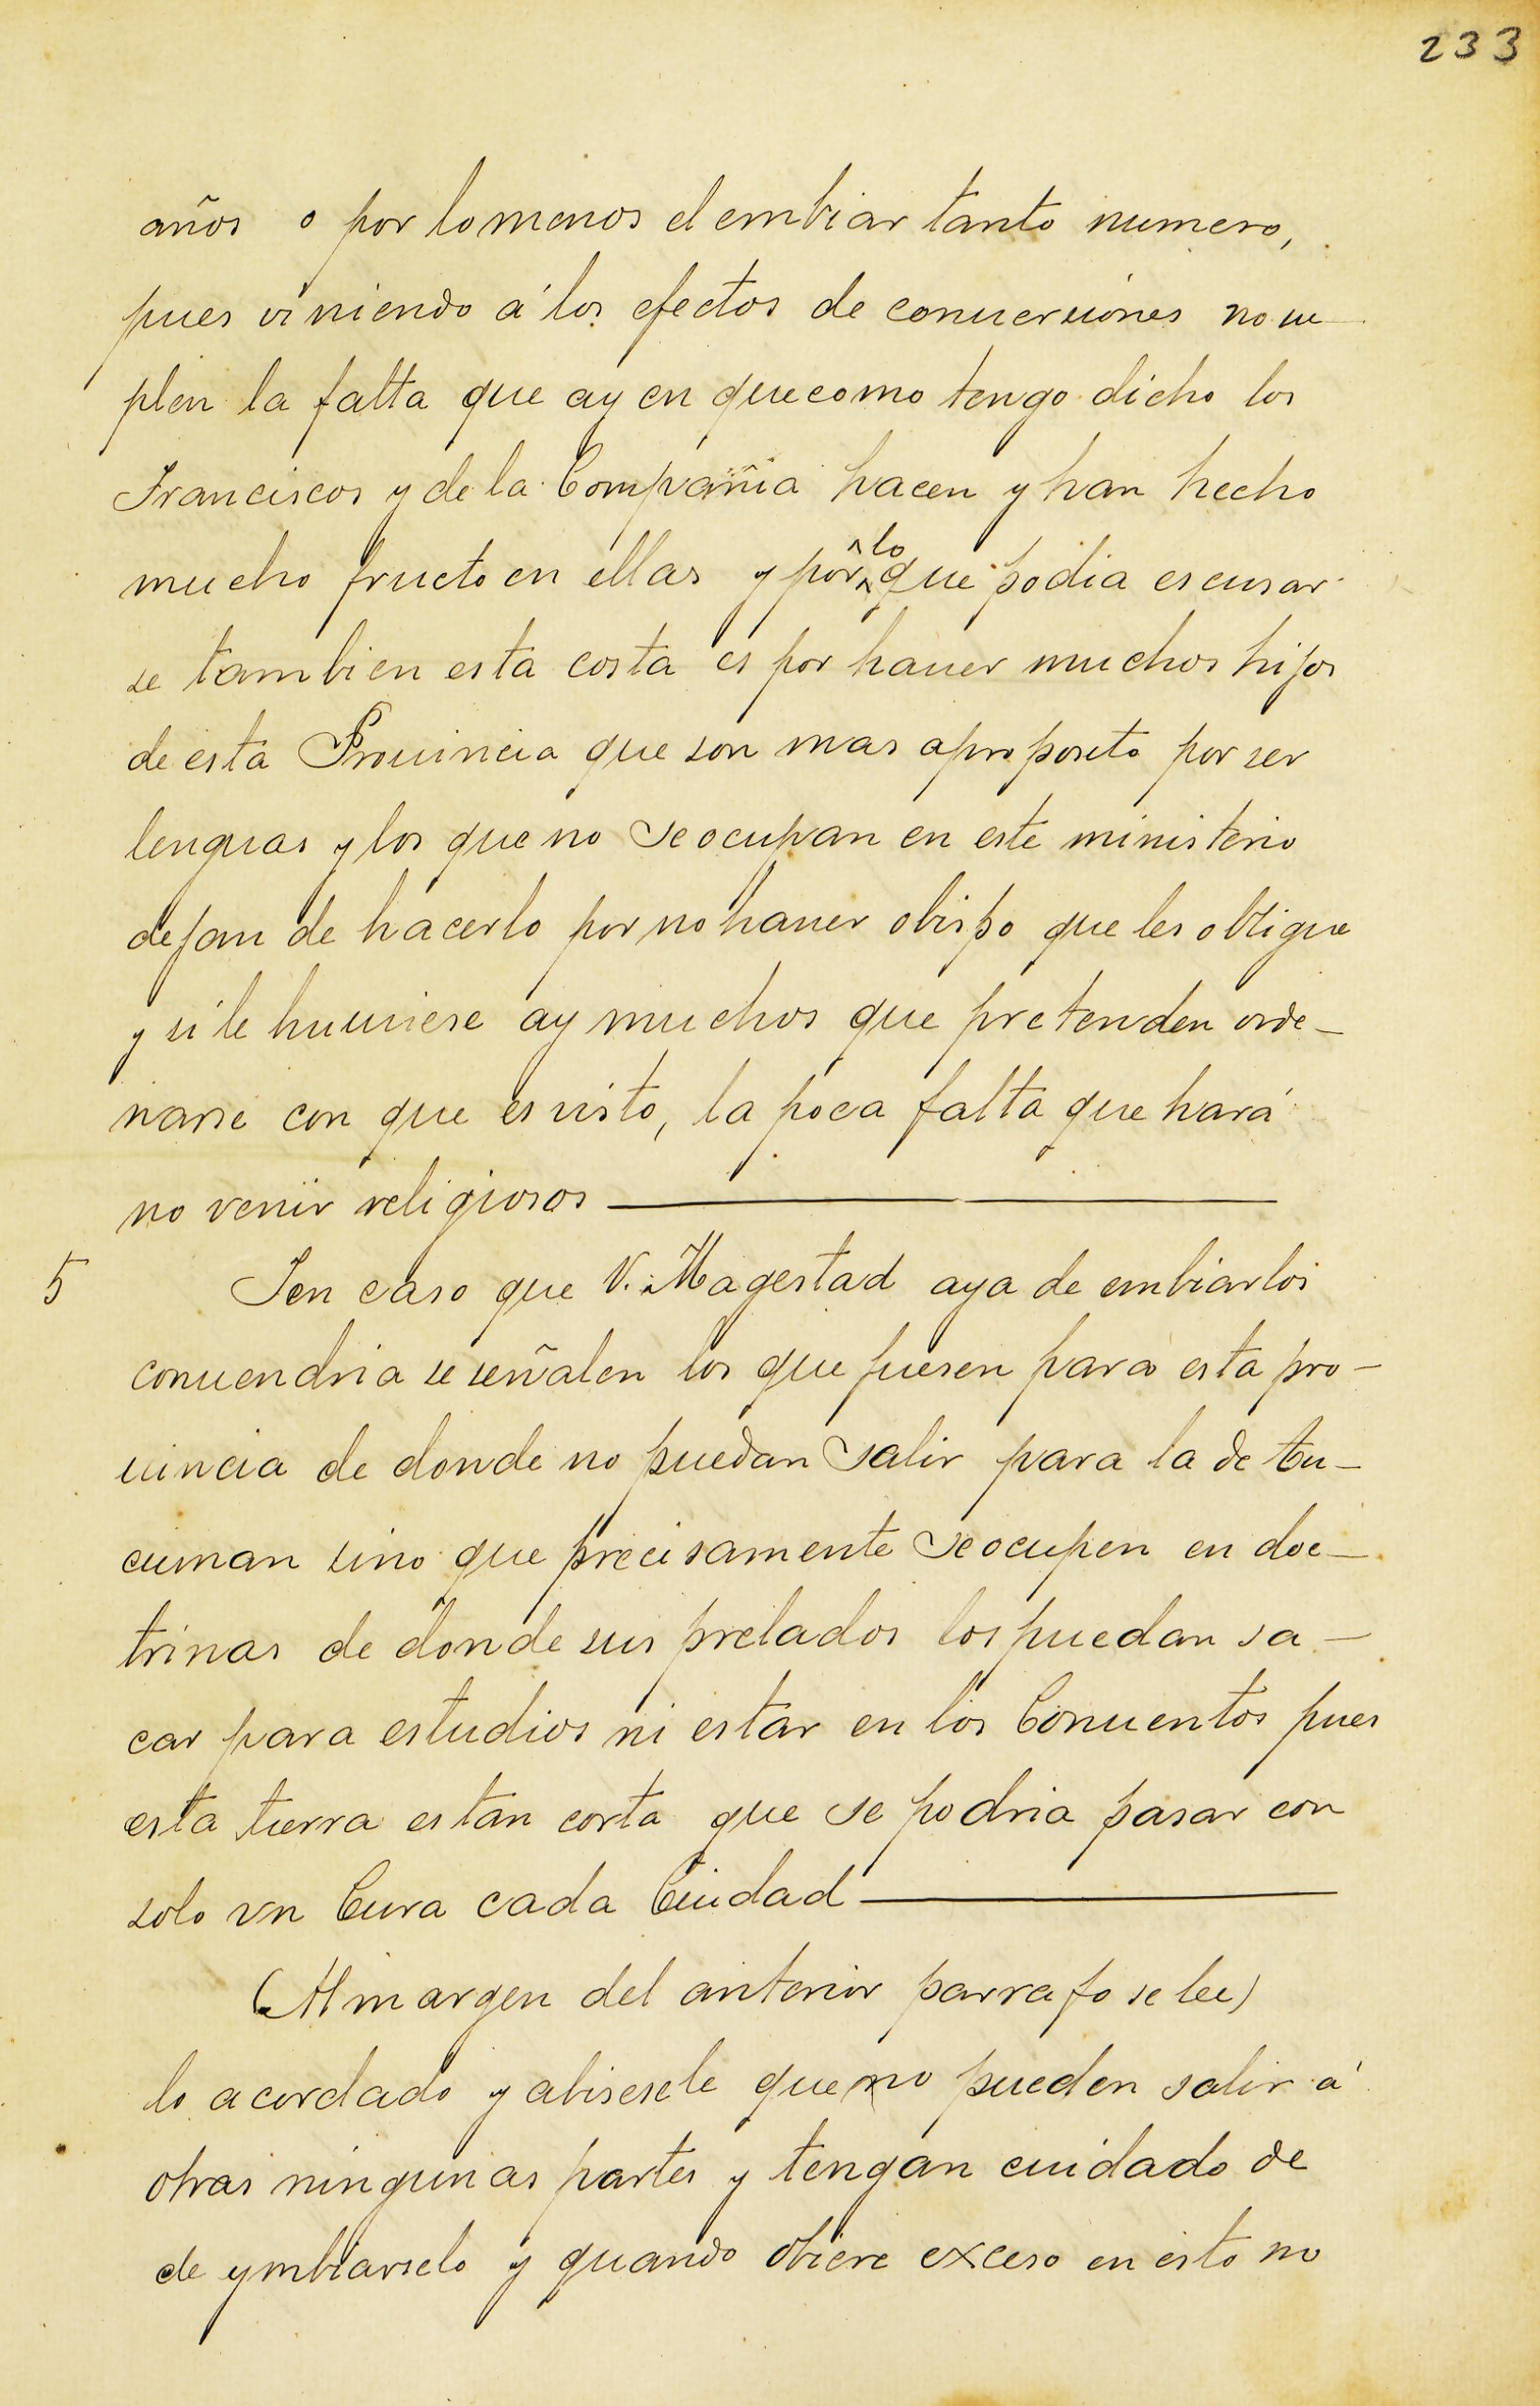 233
años o por lo menos el embiar tanto numero,
pues viniendo á los efectos de conuersiones no su-
plen la falta que ay en que como tengo dicho los
Franciscos y de la Compañia hacen y han hecho
mucho fructo en ellas y por lo que podia escusar
se tambien esta costa es por hauer muchos hijos
de esta Prouincia que son mas aproposito por ser
lenguas y los que no se ocupan en este ministerio
dejan de hacerlo por no hauer obispo que les obligue
y si le huuiese ay muchos que pretenden orde-
narse con que es visto, la poca falta que hará
no venir religiosos
5 I en caso que V. Magestad aya de embiarlos
conuendria se señalen los que fuesen para esta pro-
uincia de donde no puedan salir para la de tu-
cuman sino que precisamente se ocupen en doc-
trinas de donde sus prelados los puedan sa-
car para estudios ni estar en los Conuentos pues
esta tierra es tan corta que se podria pasar con
solo vn Cura cada Ciudad
(Al margen del anterior parrafo se lee)
lo acordado y abisesele que no pueden salir á
otras ningunas partes y tengan cuidado de
de ymbiarselo y quando obiere exceso en esto no